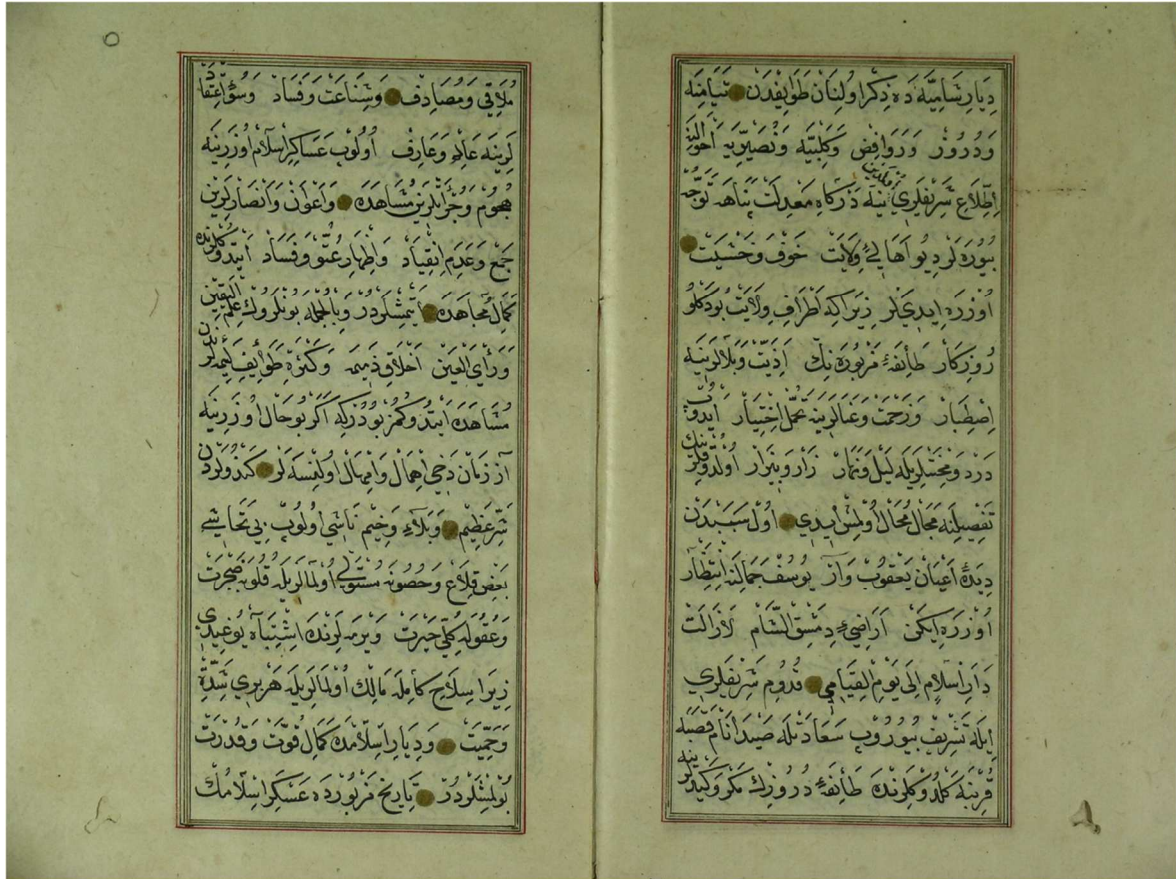 دیار شامیه ده ذکر اولنان طوایفدن تیامنه
و دروز و روافض و کلبیه و نصیریه احوالنه
اطلاع شریفلری اولدین ینه درکاه معدلت پناهه توجه
بیوره لر دیو اهالئ ولایت خوف و خشیت
اوزره ایدیلر زیرا که اطراف ولایت بو دکلو
روزکار طائفۀ مزبوره نك اذیت و بلالرینه
اصطبار و زحمت و عنالرینه تحمل اختیار ایدوب
درد و محنتلریله لیل و نهار زار و بیزار اولدوقلرینك
تفصیلنه مجال محال اولمش ایدی اول سببدن
دیدۀ اعیان یعقوب وار یوسف جمالنه انتظار
اوزره ایکن اراضئ دمشق الشام لازالت
دار اسلام الی یوم القیام قدوم شریفلری
ایله تشریف بیوروب سعادتله صیدا نام قصبه
قربنه کلدوکلرنده طائفۀ دروزك مکر و کیدلرینه
٥
ملاقی و مصادف و شناعت و فساد و سوء اعتقاد
لرینه عالم و عارف اولوب عساکر اسلام اوزرینه
هجوم و جرأتلرین مشاهده و اعوان و انصارلرین
جمع و عدم انقیاد و اظهار عتو و فساد ایتدوکلرنده
کمال مجاهده ایتمشلردر و بالجمله بونلروك علم الیقین
و رأی العین اخلاق ذمیمه و کثرة طوائف لئیمه لرندن
مشاهده ایتدوکمز بودرکه اکر بو حال اوزرینه
از زمان دخی اهمال و امهال اولنسه لر کندولردن
شر عظیم و بلاء وخیم ناشی اولوب بی تحاشی
بعض قلاع و حصونه مستولی اولمالریله قلوبه ضجرت
و عقوله کلی حیرت ویرمه لرنده اشتباه یوغیدی
زیرا سلاح کامله مالك اولمالریله هر بری شدة
و حمیت و دیار اسلامده کمال قوت و قدرت
بولمشلردر تاریخ مزبورده عسکر اسلامك